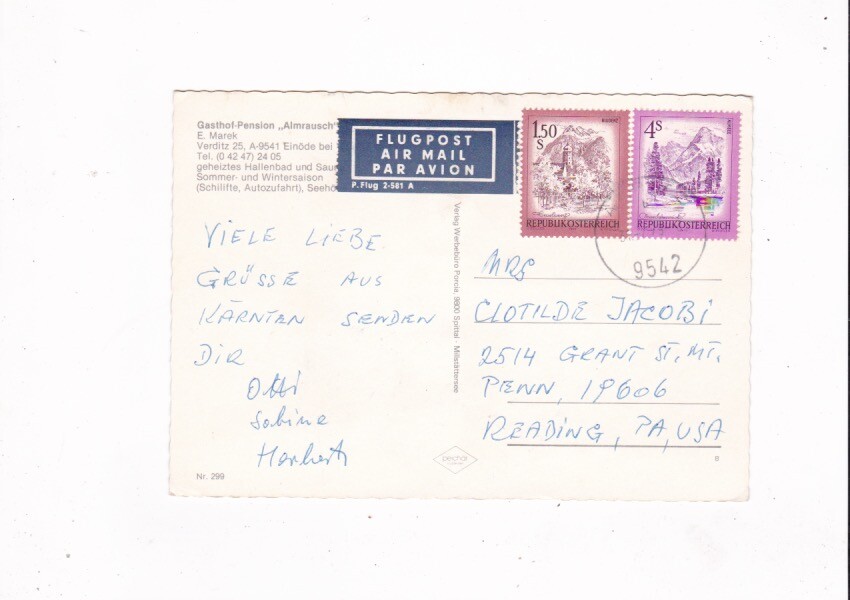 Gasthof-Pension „Almrausch"
E. Marek
Verditz 25, A-9541 Einöde bei
Tel. (0 42 47) 24 05
geheiztes Hallenbad und Sau
Sommer- und Wintersaison
(Schilifte, Autozufahrt), Seehö
FLUGPOST
AIR MAIL
PAR AVION
P. Flug 2-581 A
1.50 S
REPUBLIK ÖSTERREICH
4 S
REPUBLIK ÖSTERREICH
9542
VIELE LIEBE
GRÜSSE AUS
KÄRNTEN SENDEN
DIR
Otti
Sabine
Herbert
Verlag Werbebüro Porcia, 9800 Spittal - Millstättersee
MRS
CLOTILDE JACOBI
2514 GRANT ST, MT.
PENN, 19606
READING, PA, USA
Nr. 299